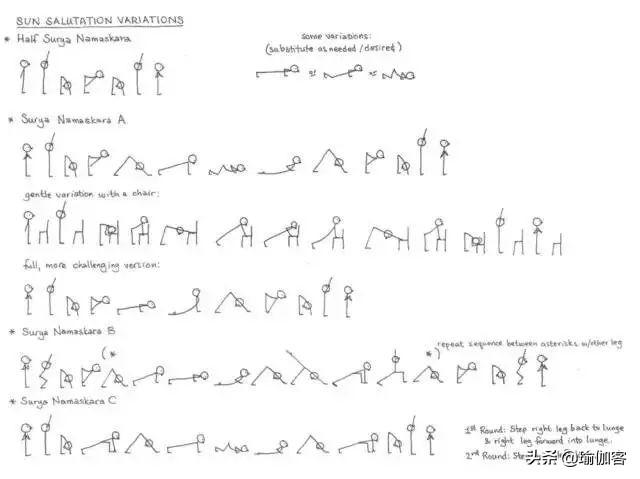 SUN SALUTATION VARIATIONS
* Half Surya Namaskara
some variations:
(substitute as needed/desired)
or
or
* Surya Namaskara A
gentle variation with a chair:
full, more challenging version:
* Surya Namaskara B
(*
*)
repeat sequence between asterisks w/other leg
* Surya Namaskara C
1st Round: Step right leg back to lunge
& right leg forward into lunge.
2nd Round: Step
头条@瑜伽客